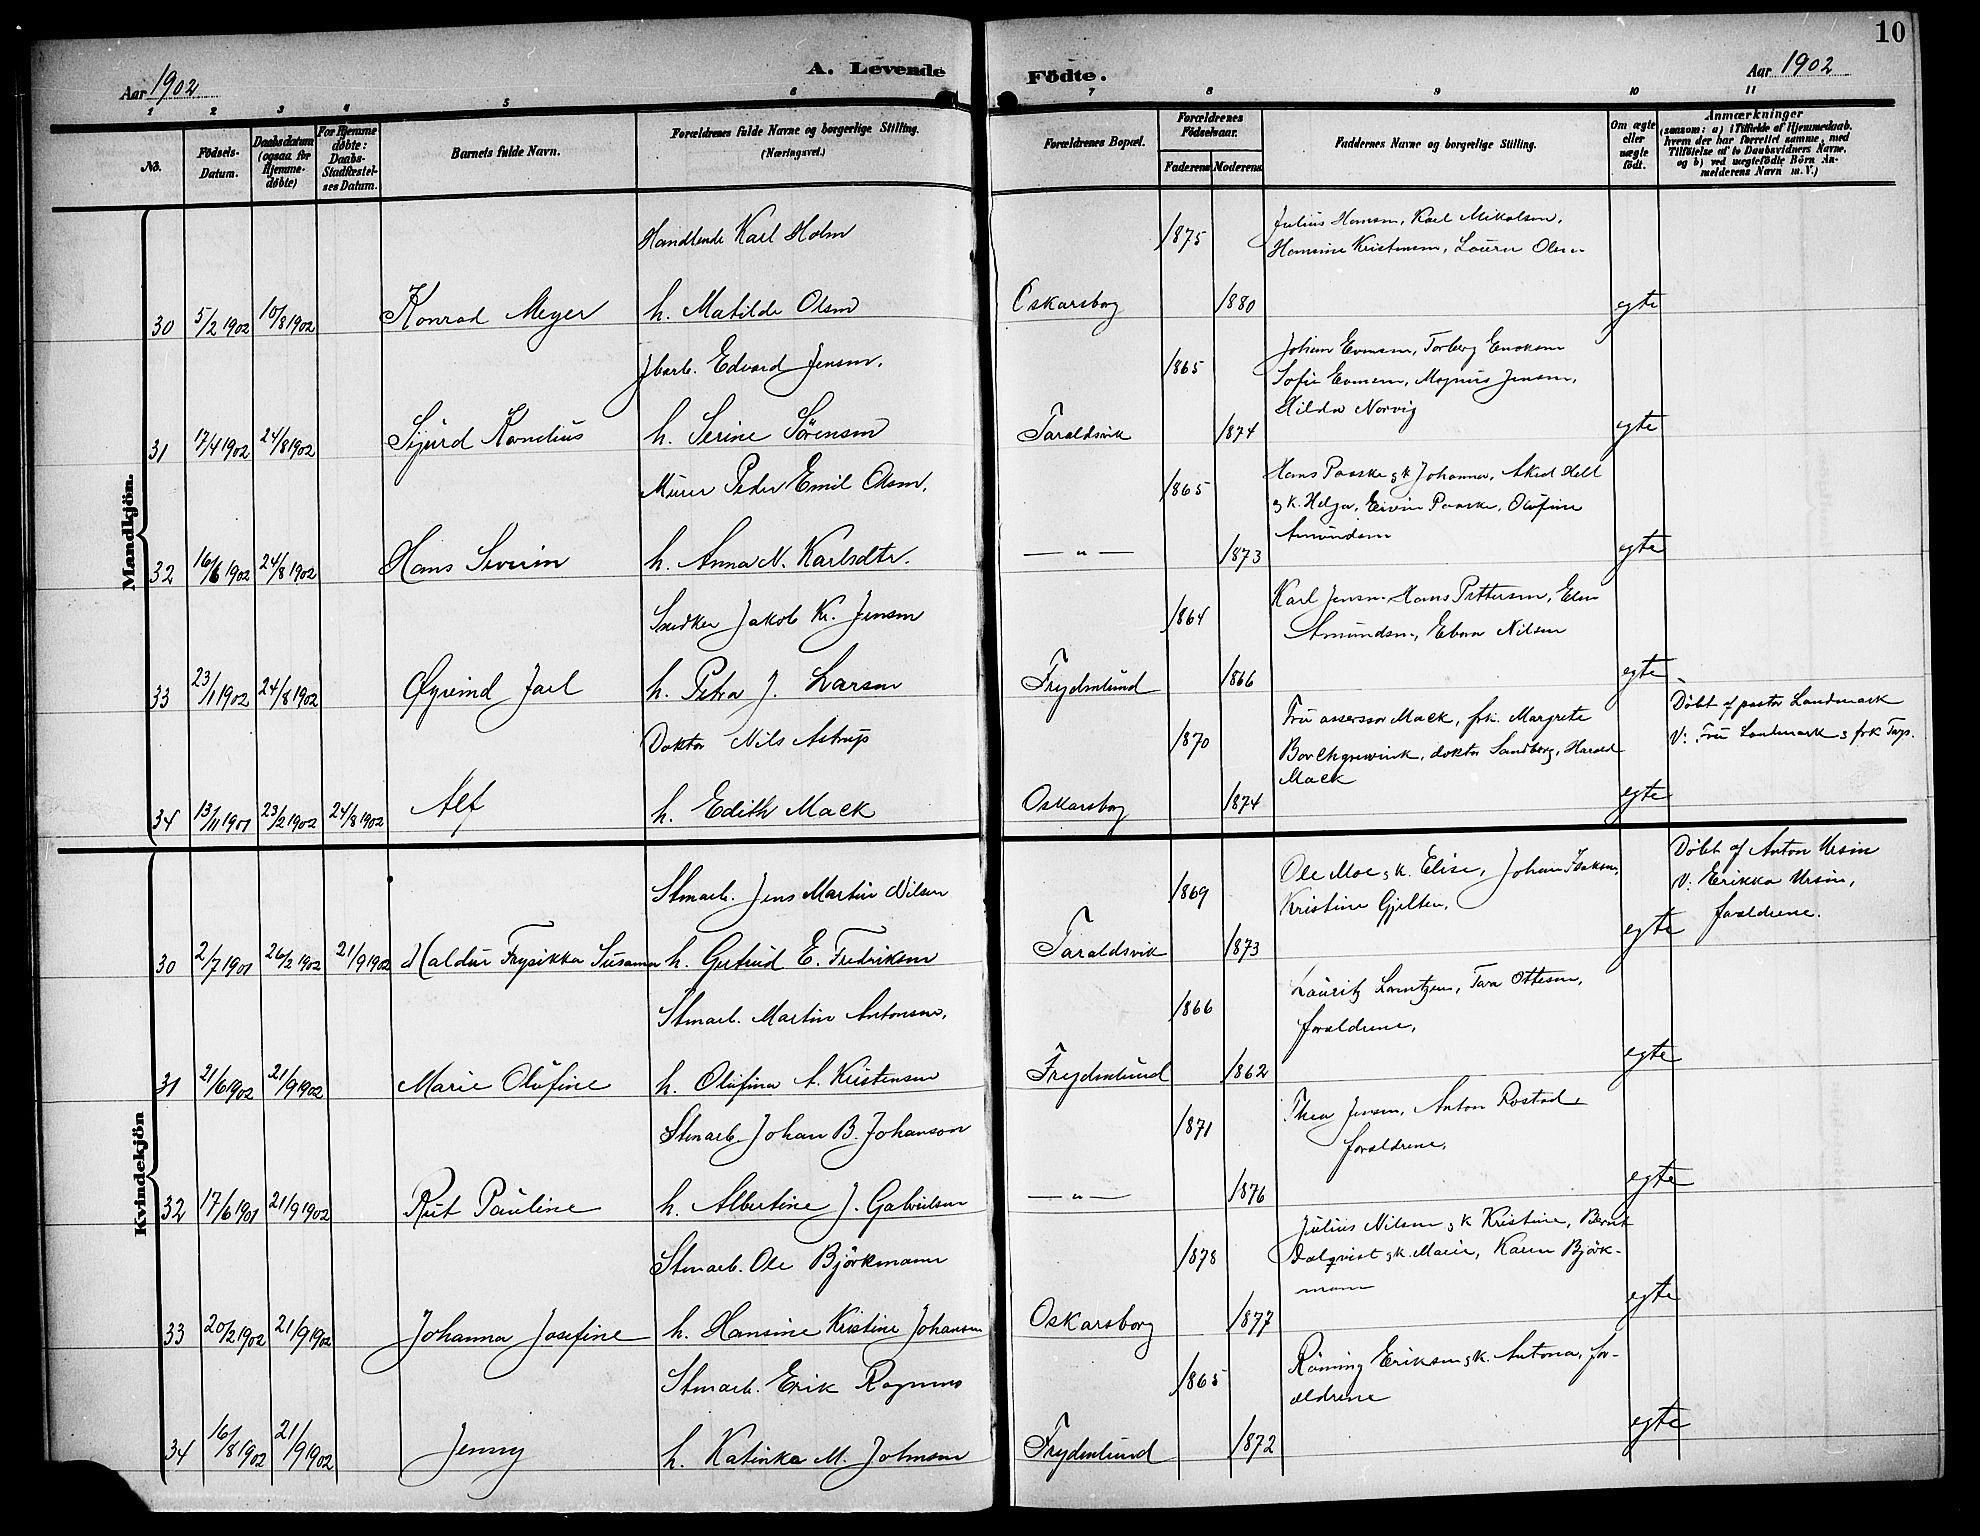 10
Aar 1902
A. Levende Födte.
Aar 1902
1 2 3 4 5 6 7 8 9 10 11
No.
Födsels-Datum.
Daabsdatum (ogsaa for Hjemme-döbte)
For Hjemme döbte: Daabs-Stadfæstel-ses Datum.
Barnets fulde Navn.
Forældrenes fulde Navne og borgerlige Stilling.
(Næringsvei.)
Forældrenes Bopæl.
Forældrenes Födselsaar.
Faderens
Moderens
Faddernes Navne og borgerlige Stilling.
Om ægte eller uægte födt.
Anmærkninger
(saasom: a) i Tilfælde af Hjemmedaab.
hvem der har forrettet samme, med
Tilföielse af to Daabsvidners Navne.
og b) ved uegtefödte Börn An-
melderens Navn m. V.)
Mandkjön.
Handlende Karl Holm 1875 Julius Hansen, Karl Mikalsen,
Hansine Kristensen, Laura Olsen
30 5/2 1902 10/8 1902 Konrad Meyer h. Matilde Olsen Oskarsborg 1880 egte
Jbarb. Edvard Jensen. 1865 Johan Evensen, Torberg Enoksen
Sofie Evensen, Magnus Jensen,
Hilda Norvig
31 17/4 1902 24/8 1902 Sigurd Kornelius h. Serine Sörensen Taraldsvik 1874 egte
Murer Peder Emil Olsen. 1865 Hans Paaske & k Johanna, Aksel Hell
& k. Helga, Eivin Paaske, Olufine
Amundsen
32 16/6 1902 24/8 1902 Hans Severin h. Anna N. Karlsdtr. — „ — 1873 egte
Snedker Jakob Kr. Jensen 1864 Karl Jensen Hans Pettersen, Elen
Amundsen, Ebara Nilsen
33 23/1 1902 24/8 1902 Øyvind Jarl h. Petra J. Larsen Frydenlund 1866 egte
Doktor Nils Astrup 1870 Fru assessor Mack, frk. Margrete
Borchgrevink, doktor Sandberg, Harald
Mack
Døbt af pastor Landmark
V: Fru Landmark & frk
34 13/11 1901 23/2 1902 24/8 1902 Alf h. Edith Mack Oskarsborg 1874 egte
Kvindekjön
Stenarb. Jens Martin Nilsen 1869 Ole Moe & k. Elise, Johan Isaksen,
Kristine Gjelten,
Døbt af Anton Ursin
V: Erikka Ursin,
forældrene.
30 2/7 1901 26/2 1902 21/9 1902 Haldur Frysikka Susanna h. Gertrud E. Fredriksen Taraldsvik 1873 egte
Stenarb. Martin Antonsen, 1866 Lauritz Lorntzen, Tora Ottesen,
forældrene,
31 21/6 1902 21/9 1902 Marie Olufine h. Olufina A. Kristensen Frydenlund 1862 egte
Stenarb. Johan B. Johanson 1871 Thea Jensen, Anton Rostad
forældrene,
32 17/6 1901 21/9 1902 Rut Pauline h. Albertine J. Gabrielsen — „ — 1876 egte
Stenarb. Ole Björkmann 1878 Julius Nilsen & k Kristine, Bernt
Dalqvist & k. Marie, Karen Björk-
mann
33 20/2 1902 21/9 1902 Johanna Josefine h. Hansine Kristine Johansen Oskarsborg 1877 egte
Stenarb. Erik Ragnus 1865 Röning Eriksen & k. Antona, for-
ældrene
34 16/8 1902 21/9 1902 Jenny h. Katinka M. Johnsen Frydenlund 1872 egte